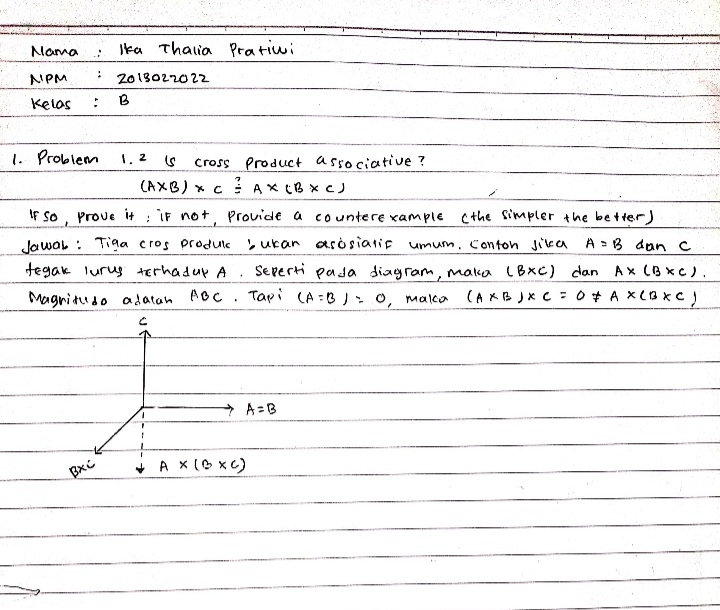 Nama : Ika Thalia Pratiwi
NPM : 2013022022
Kelas : B
1. Problem 1.2 Is cross product associative?
(A×B) × C ≟ A × (B × C)
If so, prove it ; if not, Provide a counterexample (the simpler the better)
Jawab : Tiga cros produk bukan asosiatif umum. Contoh Jika A = B dan C
tegak lurus terhadap A. Seperti pada diagram, maka (B×C) dan A× (B×C).
Magnitudo adalah ABC. Tapi (A=B) = 0, maka (A×B)×C = 0 ≠ A ×(B×C)
C
A=B
B×C
A × (B × C)